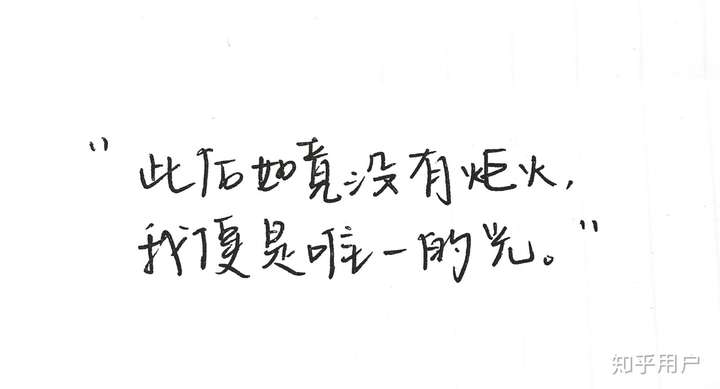 "此后如竟没有炬火,
我便是唯一的光。"
知乎用户